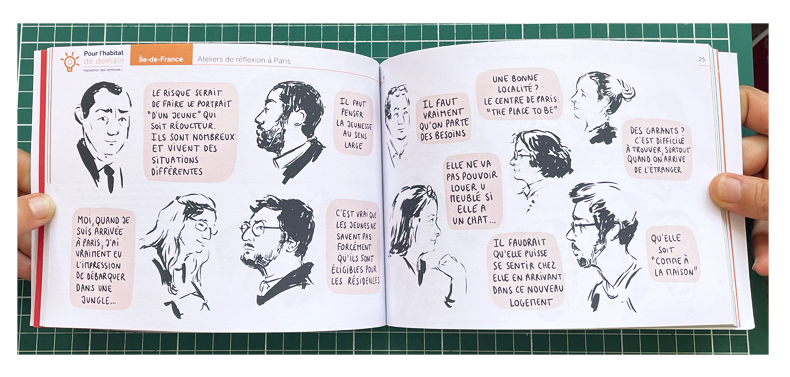 Pour l'habitat
de demain
Île-de-France
Ateliers de réflexion à Paris
LE RISQUE SERAIT
DE FAIRE LE PORTRAIT
"D'UN JEUNE" QUI
SOIT RÉDUCTEUR.
ILS SONT NOMBREUX
ET VIVENT DES
SITUATIONS
DIFFÉRENTES
IL FAUT
PENSER
LA JEUNESSE
AU SENS
LARGE
MOI, QUAND JE
SUIS ARRIVÉE
À PARIS, J'AI
VRAIMENT EU
L'IMPRESSION
DE DÉBARQUER
DANS UNE
JUNGLE...
C'EST VRAI QUE
LES JEUNES NE
SAVENT PAS
FORCÉMENT
QU'ILS SONT
ÉLIGIBLES POUR
LES RÉSIDENCES
25
IL FAUT
VRAIMENT
QU'ON PARTE
DES BESOINS
UNE BONNE
LOCALITÉ?
LE CENTRE DE PARIS
"THE PLACE TO BE"
DES GARANTS?
C'EST DIFFICILE
À TROUVER, SURTOUT
QUAND ON ARRIVE
DE L'ÉTRANGER
ELLE NE VA
PAS POUVOIR
LOUER U
MEUBLÉ SI
ELLE A
UN CHAT...
IL FAUDRAIT
QU'ELLE PUISSE
SE SENTIR CHEZ
ELLE EN ARRIVANT
DANS CE NOUVEAU
LOGEMENT
QU'ELLE
SOIT
"COMME À
LA MAISON"